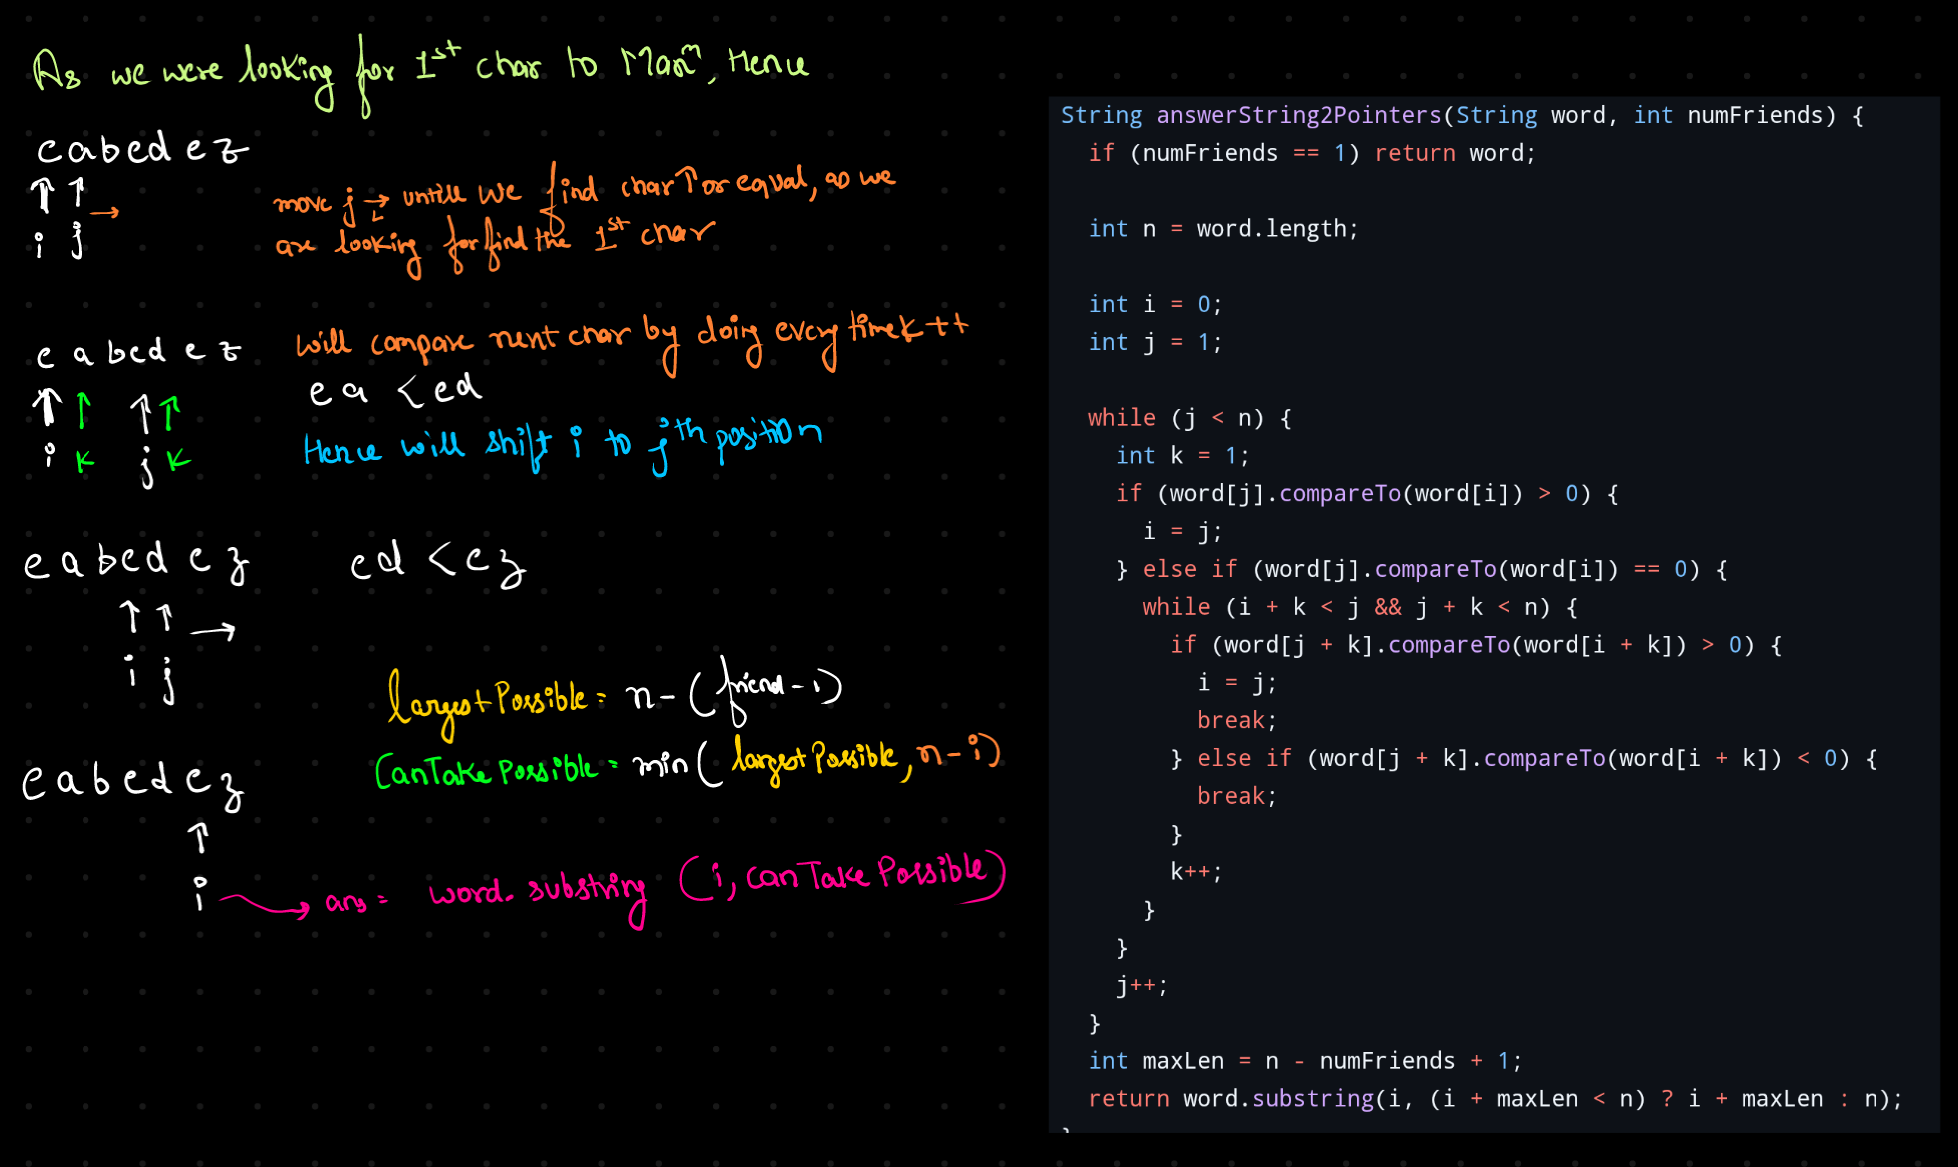 As we were looking for 1st char to Maxm, Hence
eabcdez
i j
move j → untill we find char ↑ or equal, as we
are looking for find the 1st char
e a bcd e z
will compare next char by doing every time k++
ea < ed
i k j k
Hence will shift i to jth position
e a b e d e z
ed < ez
i j
largestPossible = n - (friend - 1)
CanTake Possible = min( largest Possible, n - i)
e a b e d e z
i → ans = word. substring (i, canTake Possible)
String answerString2Pointers(String word, int numFriends) {
if (numFriends == 1) return word;
int n = word.length;
int i = 0;
int j = 1;
while (j < n) {
int k = 1;
if (word[j].compareTo(word[i]) > 0) {
i = j;
} else if (word[j].compareTo(word[i]) == 0) {
while (i + k < j && j + k < n) {
if (word[j + k].compareTo(word[i + k]) > 0) {
i = j;
break;
} else if (word[j + k].compareTo(word[i + k]) < 0) {
break;
}
k++;
}
}
j++;
}
int maxLen = n - numFriends + 1;
return word.substring(i, (i + maxLen < n) ? i + maxLen : n);